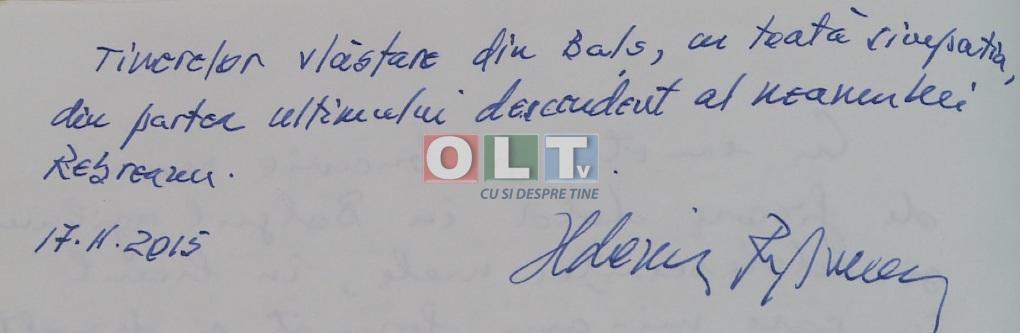 Tinerelor vlăstare din Balș, cu toată simpatia,
din partea ultimului descendent al neamului
Rebreanu.
OLTv
CU SI DESPRE TINE
17.11.2015
Rebreanu